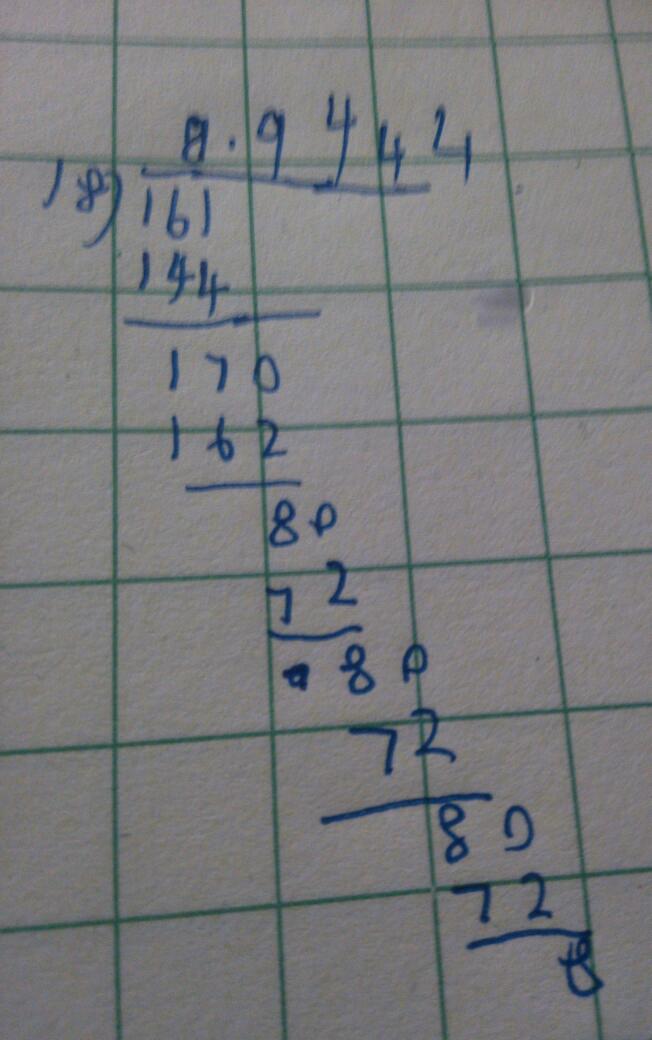 8.9444
18)161
144
170
162
80
72
80
72
80
72
8